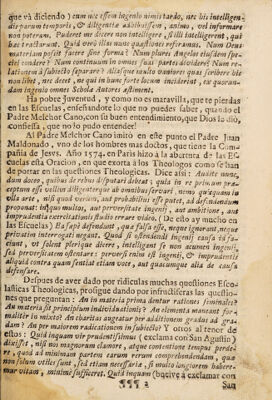 que và diciendo) cum nec essem ingenio nimis tardo, nec his intelligen-
dis parum temporis, & diligentiæ adhibuissem, animo, vel informare
non poteram. Puderet me dicere non intelligere, si illi intelligerent, qui
hæc tractarunt. Quid verò illas nunc quæstiones referamus. Num Deus
materiam possit facere sine forma? Num plures Angelos eiusdem spe-
ciei condere? Num continuum in omnes suas partes dividere? Num re-
lationem à subiecto separare? Aliasque multo vaniores quas scribere hic
non libet, nec decet, ne qui in hunc forte locum inciderint, ex quorun-
dam ingenio omnes Scholæ Autores æstiment.
Ha pobre Juventud, y como no es maravilla, que te pierdas
en las Escuelas, enseñandote lo que no puedes saber, quando el
Padre Melchor Cano, con su buen entendimiento, que Dios lo diò,
confiessa, que no lo pudo entender!
Al Padre Melchor Cano imitò en este punto el Padre Juan
Maldonado, vno de los hombres mas doctos, que tiene la Com-
pañia de Jesus. Año 1574. en Paris hizo à la abertura de las Es-
cuelas esta Oracion, en que exorta à los Theologos como se han
de portar en las questiones Theologicas. Dice assi: Audite nunc,
dum doceo, quibus de rebus disputari deceat: quia in re primum præ-
ceptum esse vellim diligenterque ab omnibus servari, nimo quiquam in
vlla arte, nisi quod verum, aut probabile esse putet, ad defendendum
proponat: inquo multos, aut proversitate ingenij, aut ambitione, aut
imprudentia exercitationis studio errare video. (De esto ay mucho en
las Escuelas) Ea sapè defendunt, qua falsa esse, neque ignorant, neque
privatim interrogati negant. Quod si offendendi ingenij causa id fa-
ciunt, vt solent plerique dicere, intelligent se non acumen ingenij,
sed proversitatem ostentare: perversi enim est ingenij, & imprudentis
aliquid contra quam sentiat etiam voce, aut quacumque alia de causa
defensare.
Despues de aver dado por ridiculas muchas questiones Esco-
lasticas Theologicas, prosigue dando por infructiferas las questio-
nes que preguntan: An in materia prima dentur rationes seminales?
An materia sit principium individuationis? An elementa maneant for-
maliter in mixto? An charitas augeatur per additionem gradus ad gra-
dum? An per maiorem radicationem in subiecto? Y otros al tenor de
estos: Quid inquam vir prudentissimus (exclama con San Agustin)
dixisset, nisi nos magnorum elaborare, eque contentione tempus perde-
re, quod ad minimam partem earum rerum comprehendendam, qua
non solum vtiles sunt, sed etiam necessaria, si multo longiorem habere-
mur vitam, minimè sufficeret. Quid inquam (buelve à exclamar con
¶¶¶ 2
San